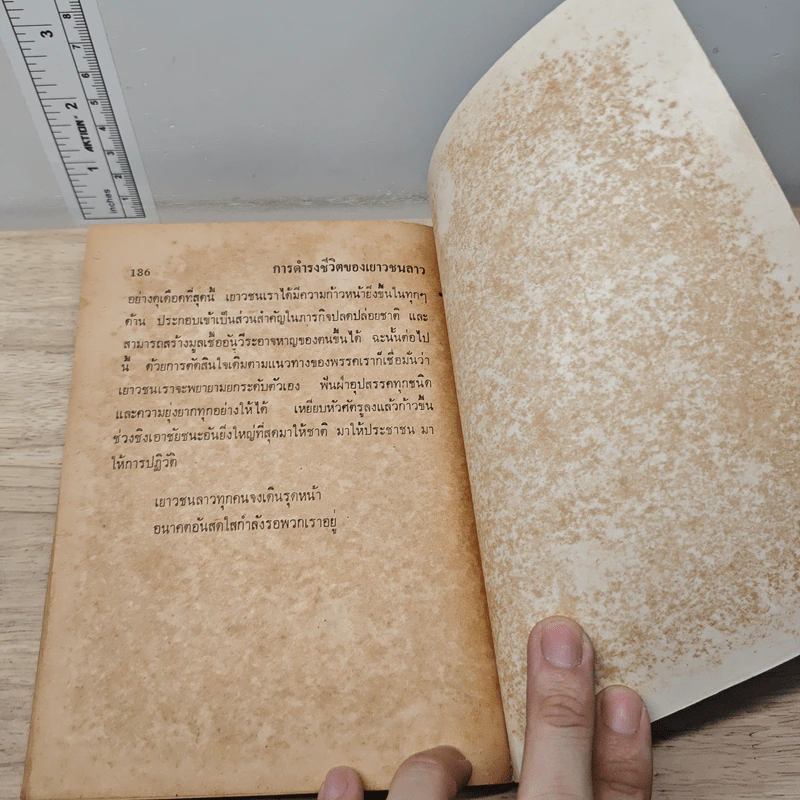 3
8
7
2
6
5
AKTION
4
1
3
2
inches
1
186 การดำรงชีวิตของเยาวชนลาว
อย่างดุเดือดที่สุดนี้ เยาวชนเราได้มีความก้าวหน้ายิ่งขึ้นในทุกๆ
ด้าน ประกอบเข้าเป็นส่วนสำคัญในภารกิจปลดปล่อยชาติ และ
สามารถสร้างมูลเชื้ออันวีระอาจหาญของตนขึ้นได้ ฉะนั้นต่อไป
นี้ ด้วยการตัดสินใจเดิมตามแนวทางของพรรคเราก็เชื่อมั่นว่า
เยาวชนเราจะพยายามยกระดับตัวเอง ฟันฝ่าอุปสรรคทุกชนิด
และความยุ่งยากทุกอย่างให้ได้ เหยียบหัวศัตรูลงแล้วก้าวขึ้น
ช่วงชิงเอาชัยชนะอันยิ่งใหญ่ที่สุดมาให้ชาติ มาให้ประชาชน มา
ให้การปฏิวัติ
เยาวชนลาวทุกคนจงเดินรุดหน้า
อนาคตอันสดใสกำลังรอพวกเราอยู่